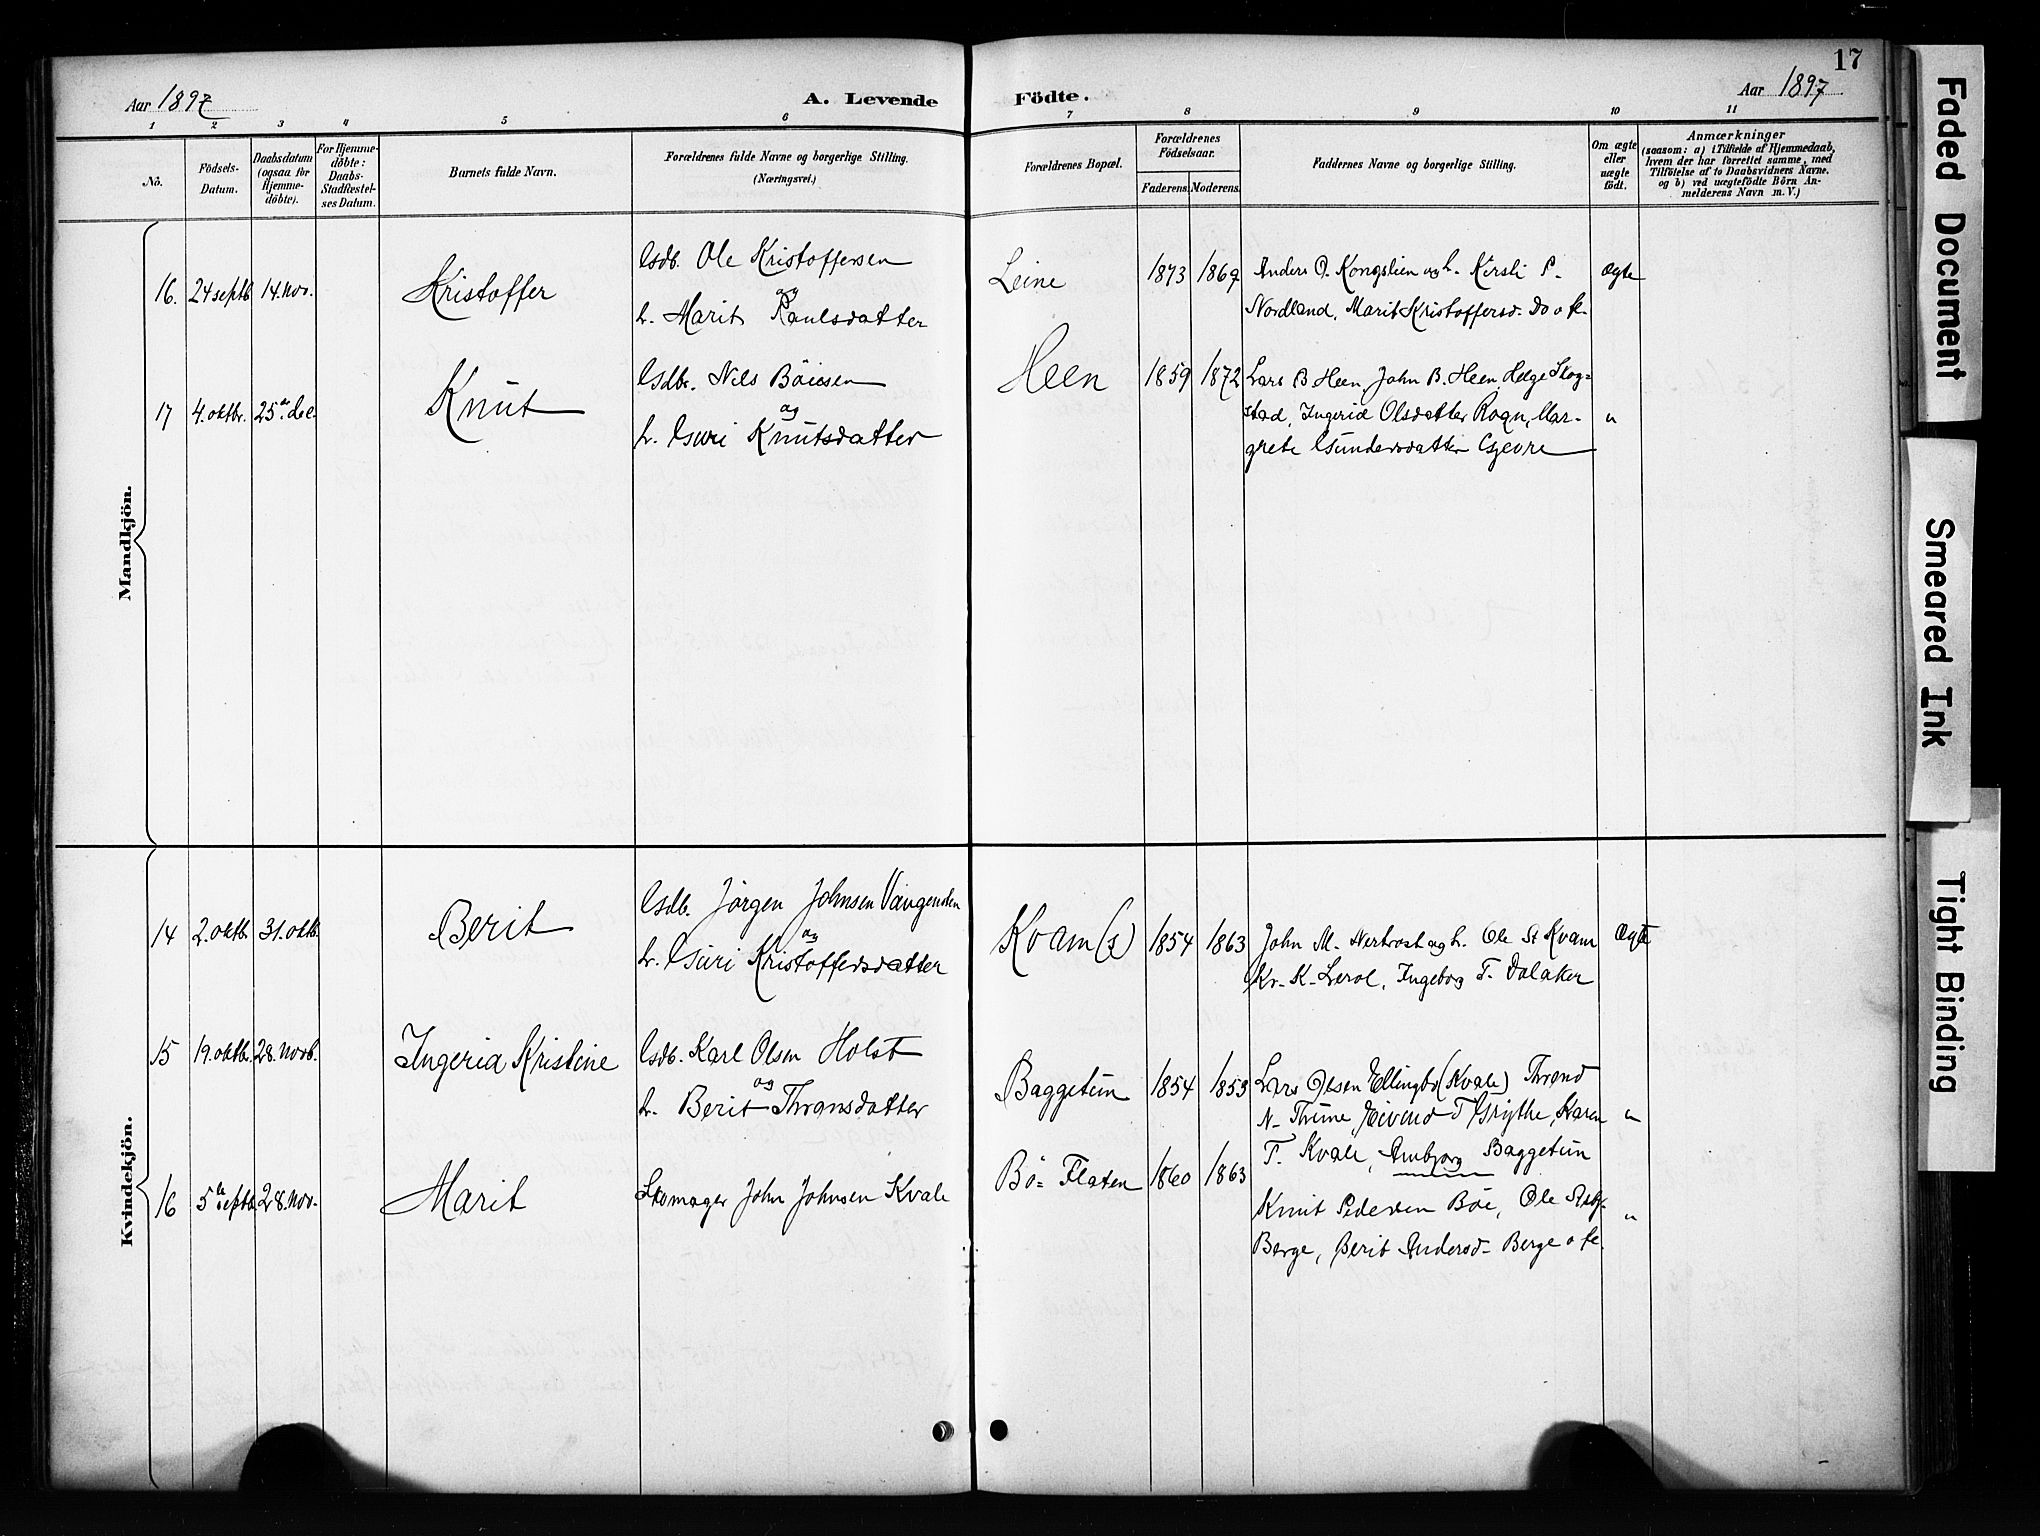 17
Aar 1897
A. Levende Födte.
Aar 1897
1 2 3 4 5 6 7 8 9 10 11
No.
Födsels-Datum.
Daabsdatum (ogsaa for Hjemme-döbte).
For Hjemme-döbte: Daabs-Stadfæstel-ses Datum.
Barnets fulde Navn.
Forældrenes fulde Navne og borgerlige Stilling.
(Næringsvei.)
Forældrenes Bopæl.
Forældrenes Födselsaar.
Faderens. Moderens.
Faddernes Navne og borgerlige Stilling.
Om ægte eller uægte födt.
Anmærkninger
(saasom: a) i Tilfælde af Hjemmedaab,
hvem der har forrettet samme, med
Tilföielse af to Daabsvidners Navne.
og b) ved uægtefödte Börn An-
melderens Navn m. V.)
Mandkjön.
16. 24 septb 14. nov. Kristoffer
Gsdb. Ole Kristoffersen
og
h. Marit Paulsdatter
Leine 1873 1869
Anders O. Kongslien og h. Kirsti P.
Nordland, Marit Kristoffersd. Do o fl.
ægte
17 4. oktbr. 25de dec. Knut
Gsdbr. Nils Böiesen
og
h. Guri Knutsdatter
Heen 1859 1872
Lars B Heen, John B. Heen, Helge Skog=
stad, Ingerid Olsdatter Rogn, Mar-
grete Gundersdatter Gjevre
"
Kvindekjön.
14 2. oktb. 31. oktb. Berit
Gsdb. Jörgen Johnsen Vangensten
og
h. Guri Kristoffersdatter
Kvam(s) 1854 1863
John M. Nertrost og h. Ole St Kvam
Kr. K. Lerol, Ingeborg T. Dalaker
Ægte
15 19. oktb. 28. novb. Ingerid Kristine
Gsdb. Karl Olsen Holst
og
h. Berit Thronsdatter
Baggetun 1854 1853
Lars Olsen Ellingbö (Kvale) Thrond
N. Thune, Eivind T Grythe, Karen
T. Kvale, Anbjørg Baggetun
"
16 5te septb. 28. nov. Marit
Skomager John Johnsen Kvale
Bö= Flaten 1860 1863
Knut Pedersen Böe, Ole
Berge, Berit Andersd. Berge o fl.
"
Faded Document
Smeared Ink
Tight Binding